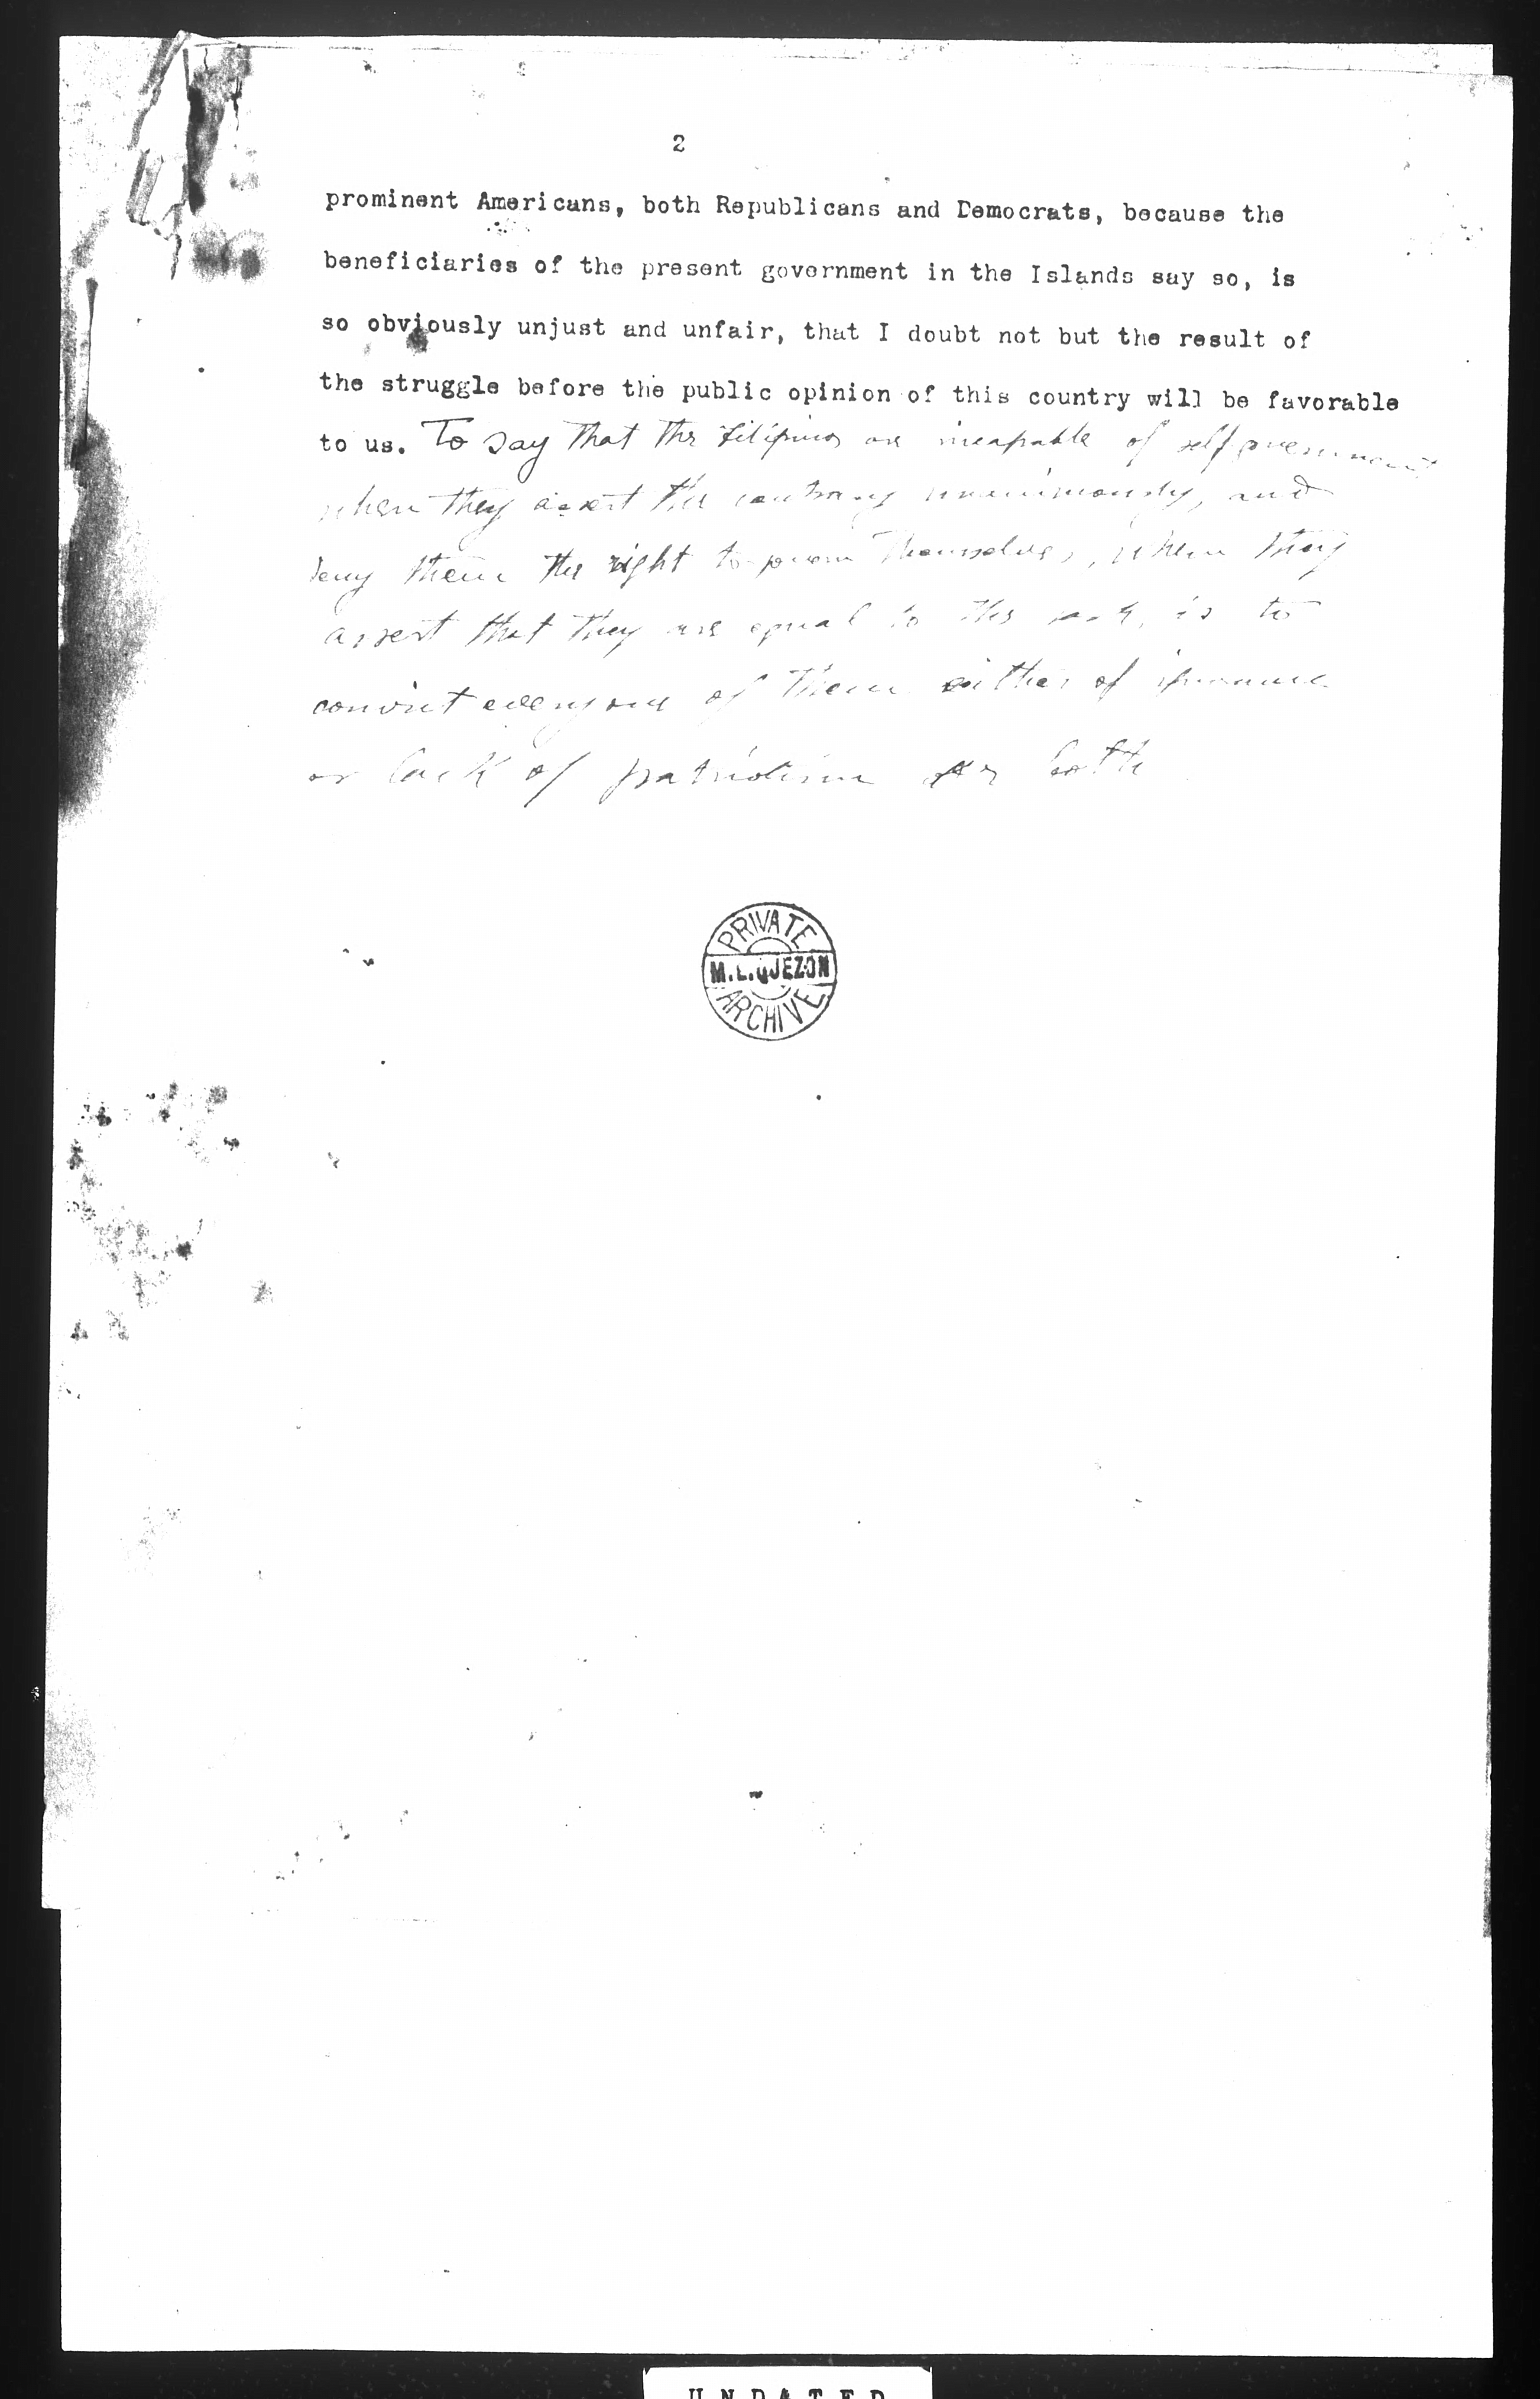 2
prominent Americans, both Republicans and Democrats, because the
beneficiaries of the present government in the Islands say so, is
so obviously unjust and unfair, that I doubt not but the result of
the struggle before the public opinion of this country will be favorable
to us. To say that the Filipinos are incapable of self government
when they assert the contrary unanimously, and
deny them the right to govern themselves, when they
assert that they are equal to the task, is to
convict everyone of them either of ignorance
or lack of patriotism or both
PRIVATE
M.L.QUEZON
ARCHIVE
UNDATED